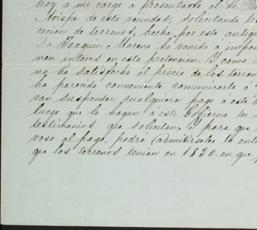 hoy á mi cargo a presentado el Sr. D
de esta vecindad, solicitando l
cion de terrenos, hecha por este antig
D. Joaquin Moreno ha venido a
nen interes en esta pretencion. Y como
no ha satisfecho el precio de los terre
ha parecido conveniente comunicarlo á
van suspender cualquiera pago á este
luego que lo hagan á este Gobierno los
testimonios que solicitan, y para que
voso el pago, podrá admitirseles la
que los terrenos tenian en 1830, en que